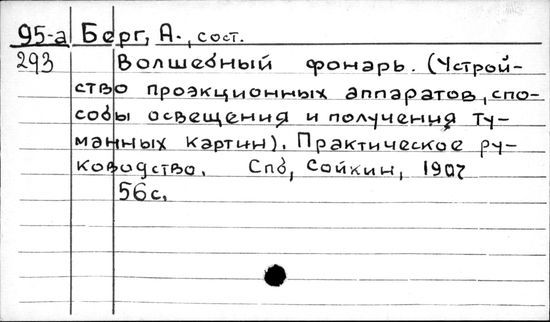 95-а Берг, А., сост.
293 Волшебный фонарь. (Устрой-
ство проэкционных аппаратов, спо-
собы освещения и получения ту-
манных картин). Практическое ру-
ководство. Спб, Сойкин, 1907
56с.